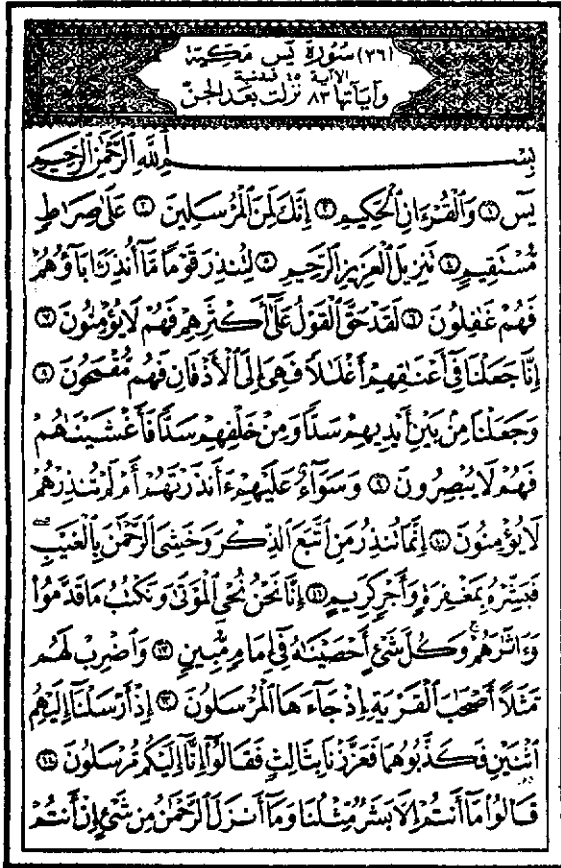 (٣٦) سُورَةُ يسٓ مَكِيَّة
الآية ٤٥ فمدنية
وَآيَاتُهَا ٨٣ نَزَلَتْ بَعْدَ الجِنّ
بِسْمِ ٱللَّهِ ٱلرَّحْمَٰنِ ٱلرَّحِيمِ
يسٓ ۝١ وَٱلْقُرْءَانِ ٱلْحَكِيمِ ۝٢ إِنَّكَ لَمِنَ ٱلْمُرْسَلِينَ ۝٣ عَلَىٰ صِرَٰطٍ
مُّسْتَقِيمٍ ۝٤ تَنزِيلَ ٱلْعَزِيزِ ٱلرَّحِيمِ ۝٥ لِتُنذِرَ قَوْمًا مَّآ أُنذِرَ ءَابَآؤُهُمْ
فَهُمْ غَٰفِلُونَ ۝٦ لَقَدْ حَقَّ ٱلْقَوْلُ عَلَىٰٓ أَكْثَرِهِمْ فَهُمْ لَا يُؤْمِنُونَ ۝٧
إِنَّا جَعَلْنَا فِىٓ أَعْنَٰقِهِمْ أَغْلَٰلًا فَهِىَ إِلَى ٱلْأَذْقَانِ فَهُم مُّقْمَحُونَ ۝٨
وَجَعَلْنَا مِنۢ بَيْنِ أَيْدِيهِمْ سَدًّا وَمِنْ خَلْفِهِمْ سَدًّا فَأَغْشَيْنَٰهُمْ
فَهُمْ لَا يُبْصِرُونَ ۝٩ وَسَوَآءٌ عَلَيْهِمْ ءَأَنذَرْتَهُمْ أَمْ لَمْ تُنذِرْهُمْ
لَا يُؤْمِنُونَ ۝١٠ إِنَّمَا تُنذِرُ مَنِ ٱتَّبَعَ ٱلذِّكْرَ وَخَشِىَ ٱلرَّحْمَٰنَ بِٱلْغَيْبِ
فَبَشِّرْهُ بِمَغْفِرَةٍ وَأَجْرٍ كَرِيمٍ ۝١١ إِنَّا نَحْنُ نُحْىِ ٱلْمَوْتَىٰ وَنَكْتُبُ مَا قَدَّمُوا۟
وَءَاثَٰرَهُمْ وَكُلَّ شَىْءٍ أَحْصَيْنَٰهُ فِىٓ إِمَامٍ مُّبِينٍ ۝١٢ وَٱضْرِبْ لَهُم
مَّثَلًا أَصْحَٰبَ ٱلْقَرْيَةِ إِذْ جَآءَهَا ٱلْمُرْسَلُونَ ۝١٣ إِذْ أَرْسَلْنَآ إِلَيْهِمُ
ٱثْنَيْنِ فَكَذَّبُوهُمَا فَعَزَّزْنَا بِثَالِثٍ فَقَالُوٓا۟ إِنَّآ إِلَيْكُم مُّرْسَلُونَ ۝١٤
قَالُوا۟ مَآ أَنتُمْ إِلَّا بَشَرٌ مِّثْلُنَا وَمَآ أَنزَلَ ٱلرَّحْمَٰنُ مِن شَىْءٍ إِنْ أَنتُمْ